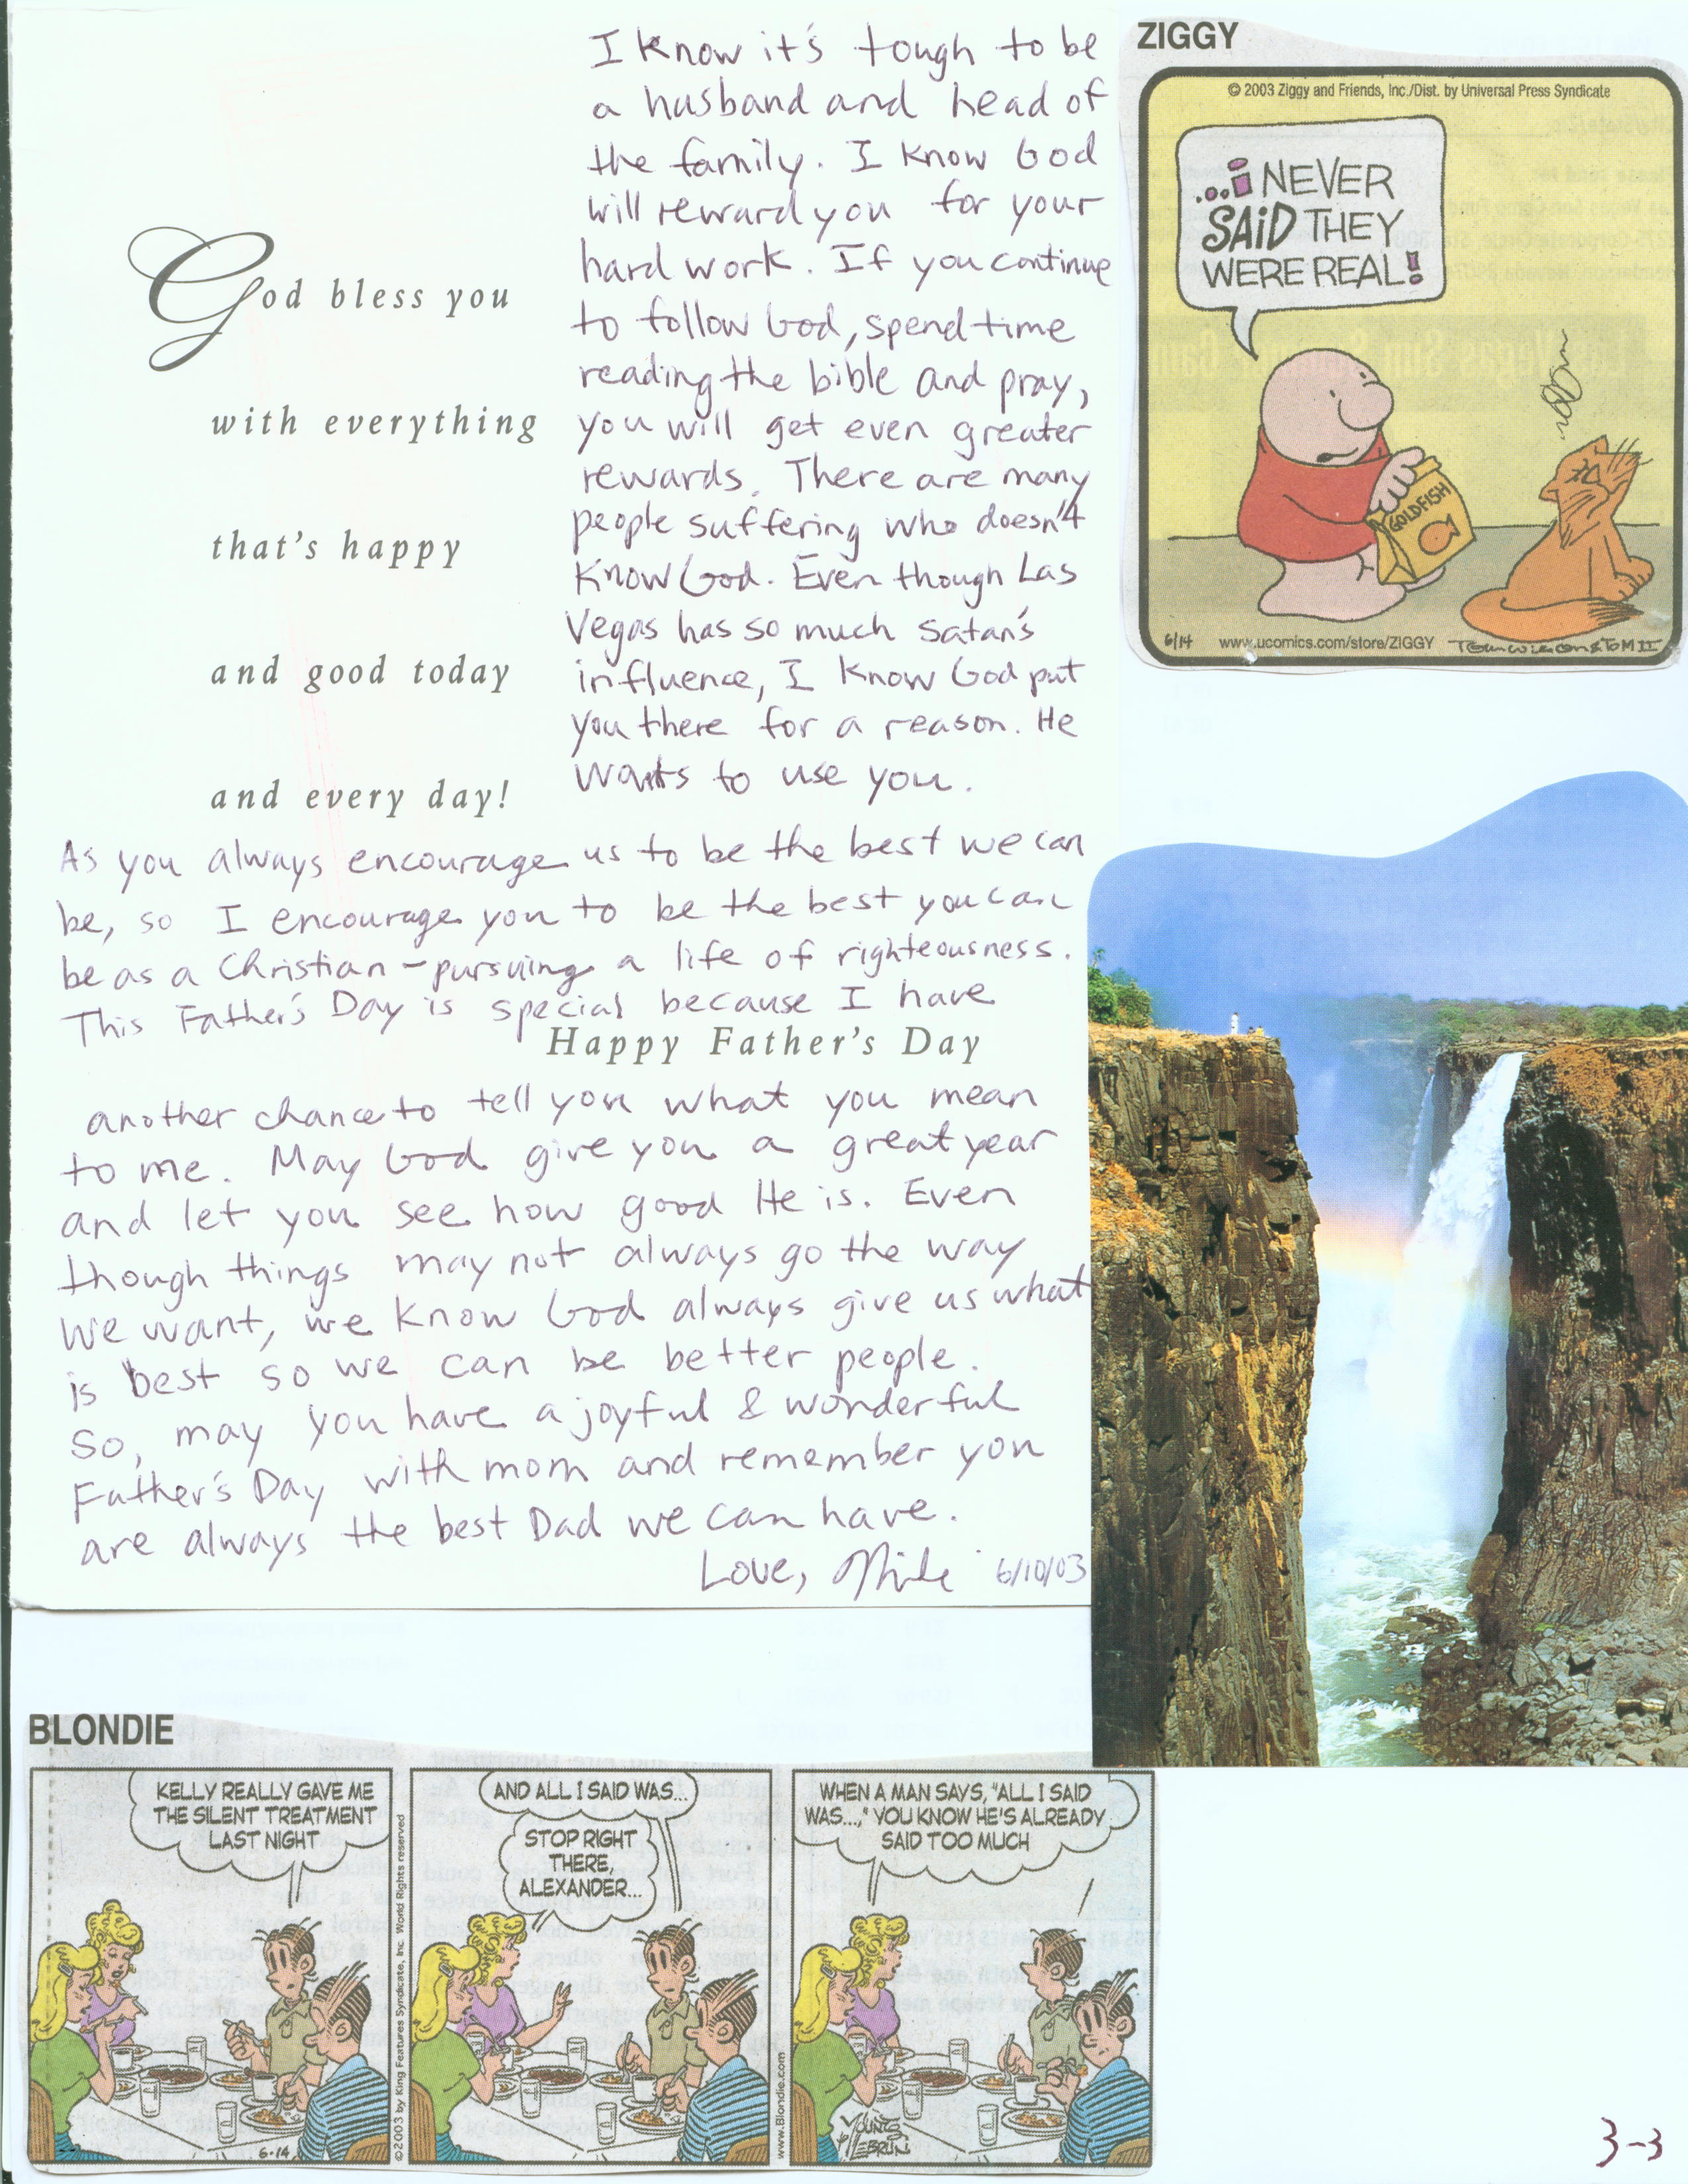 I know it's tough to be
a husband and head of
the family. I know God
will reward you for your
hard work. If you continue
to follow God, spend time
reading the bible and pray,
you will get even greater
rewards. There are many
people suffering who doesn't
know God. Even though Las
Vegas has so much Satan's
influence, I know God put
you there for a reason. He
wants to use you.
God bless you
with everything
that's happy
and good today
and every day!
As you always encourage us to be the best we can
be, so I encourage you to be the best you can
be as a Christian - pursuing a life of righteousness.
This Father's Day is special because I have
Happy Father's Day
another chance to tell you what you mean
to me. May God give you a great year
and let you see how good He is. Even
though things may not always go the way
we want, we know God always give us what
is best so we can be better people.
So, may you have a joyful & wonderful
Father's Day with mom and remember you
are always the best Dad we can have.
Love, Mike 6/10/03
ZIGGY
© 2003 Ziggy and Friends, Inc./Dist. by Universal Press Syndicate
...i NEVER
SAiD THEY
WERE REAL!
GOLDFISH
6/14 www.ucomics.com/store/ZIGGY Tom Wilson & Tom II
BLONDIE
KELLY REALLY GAVE ME
THE SILENT TREATMENT
LAST NIGHT
6-14
©2003 by King Features Syndicate, Inc. World Rights reserved
AND ALL I SAID WAS...
STOP RIGHT
THERE,
ALEXANDER...
www.Blondie.com
WHEN A MAN SAYS, "ALL I SAID
WAS...," YOU KNOW HE'S ALREADY
SAID TOO MUCH
YOUNG
& LEBRUN
3-3